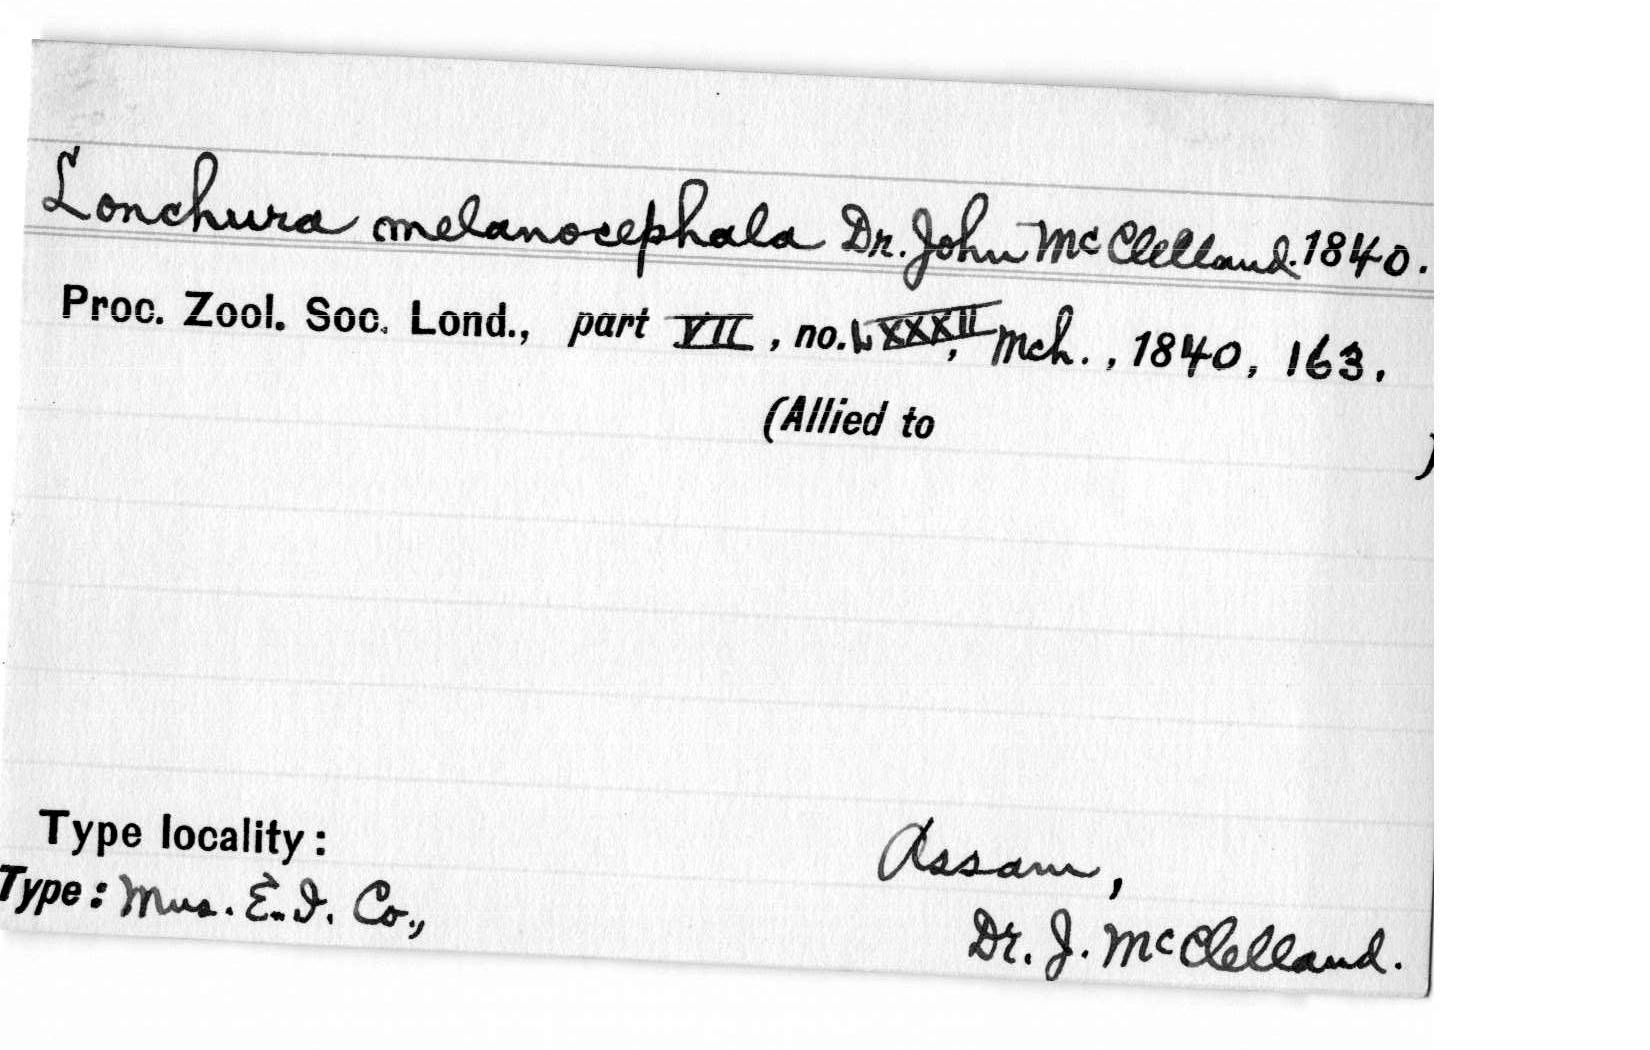 Lonchura melanocephala Dr. John McClelland. 1840.
Proc. Zool. Soc. Lond., part VII, no. LXXXII, Mch., 1840, 163.
(Allied to )
Type locality: Assam,
Type: Mus. E. I. Co., Dr. J. McClelland.